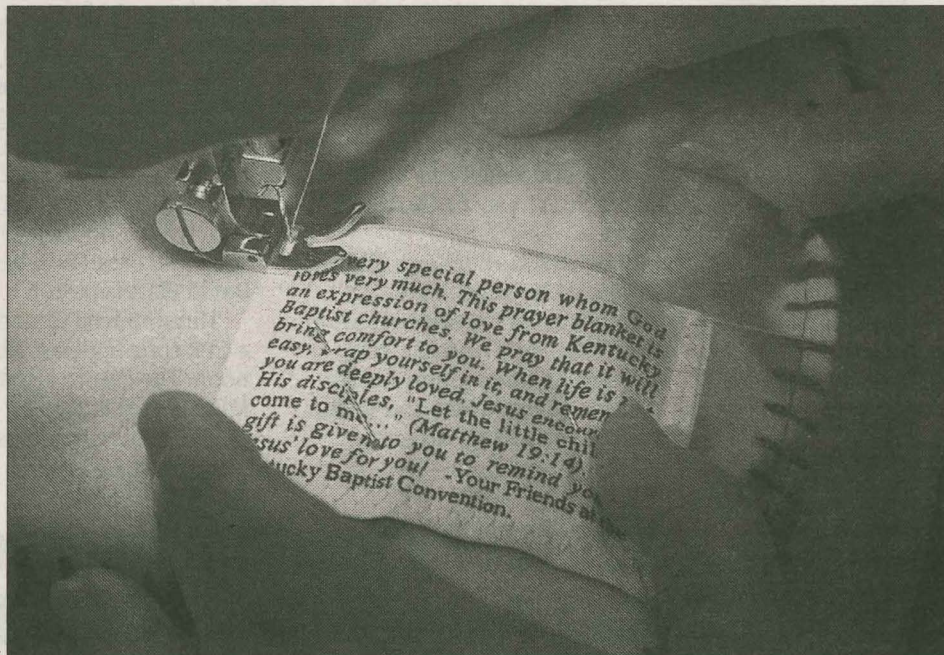 very special person whom God
loves very much. This prayer blanket is
an expression of love from Kentucky
Baptist churches. We pray that it will
bring comfort to you. When life is
easy, wrap yourself in it, and remem
you are deeply loved. Jesus encour
His disciples, "Let the little chil
come to me..." (Matthew 19:14).
gift is given to you to remind yo
esus' love for you! -Your Friends at the
tucky Baptist Convention.